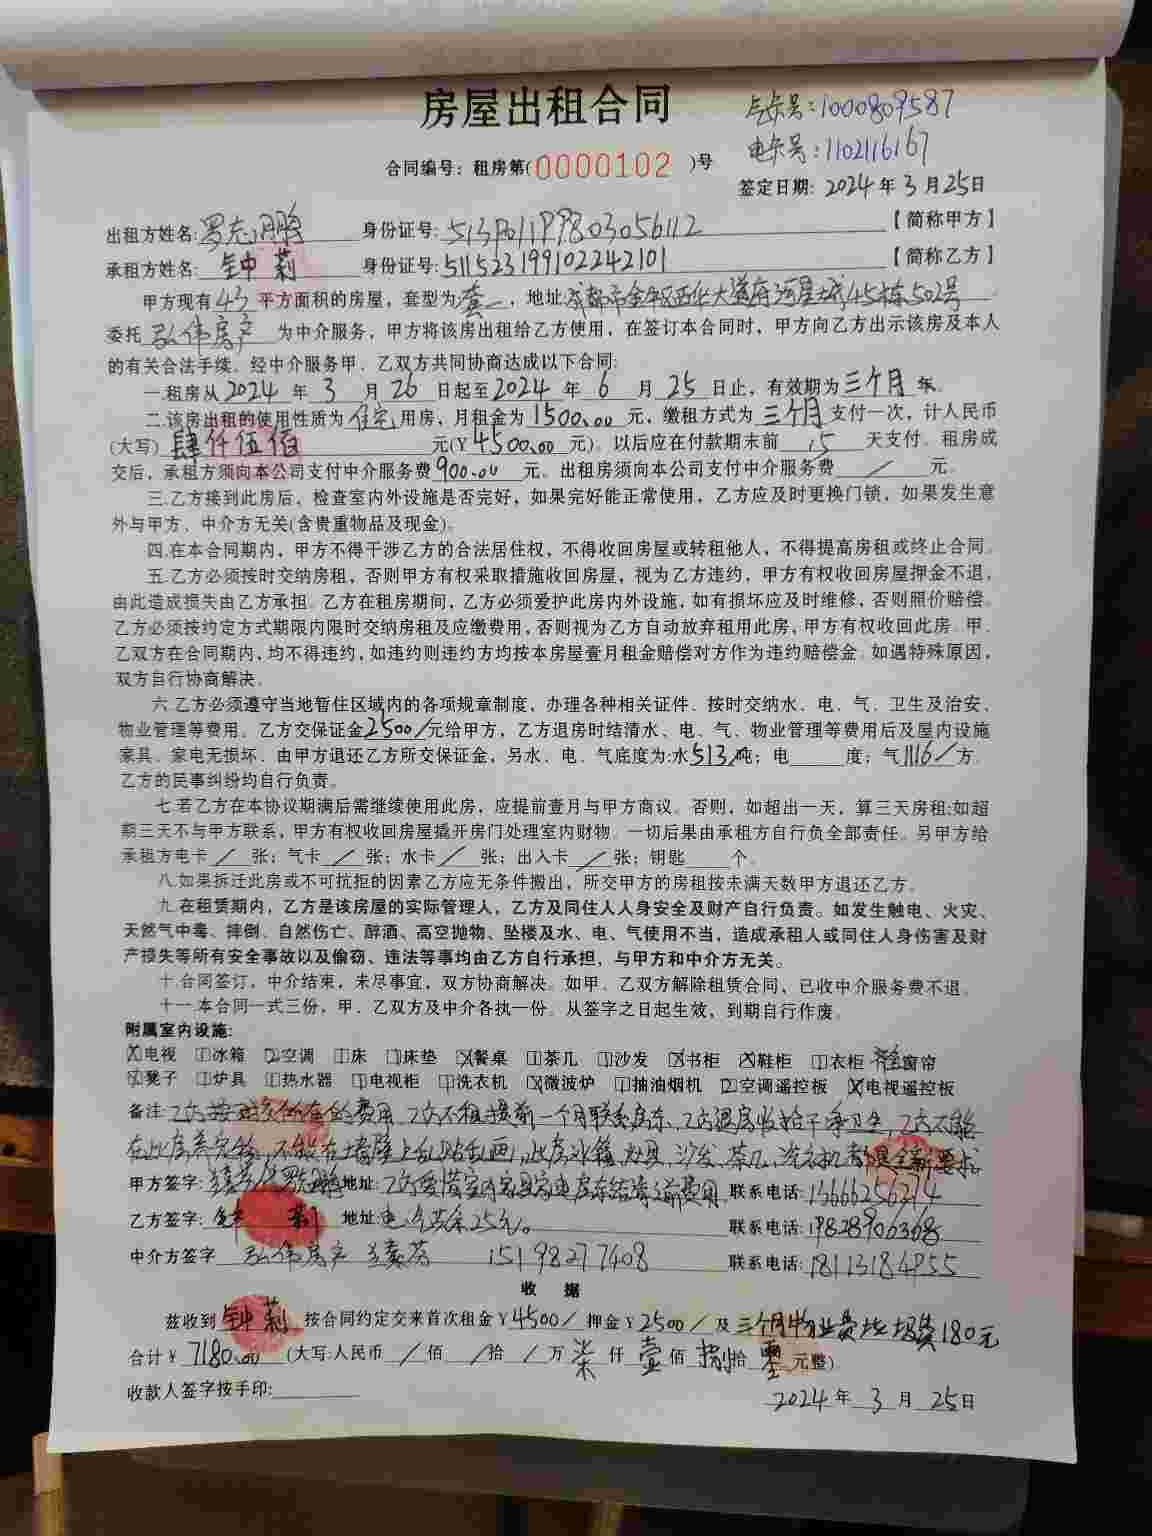 房屋出租合同
气卡号:1000809587
电卡号:1102116167
合同编号：租房第(0000102)号
签定日期: 2024年3月25日
出租方姓名: 身份证号: 【简称甲方】
承租方姓名: 钟莉 身份证号: 511523199102242101 【简称乙方】
甲方现有43平方面积的房屋，套型为套一，地址成都市金牛区西北大道府河星城45栋502号
委托 弘伟房产 为中介服务，甲方将该房出租给乙方使用，在签订本合同时，甲方向乙方出示该房及本人
的有关合法手续。经中介服务甲、乙双方共同协商达成以下合同:
一.租房从2024年3月26日起至2024年6月25日止，有效期为三个月年。
二.该房出租的使用性质为住宅用房，月租金为1500.00元，缴租方式为三个月支付一次，计人民币
(大写) 肆仟伍佰 元(￥4500.00元)。以后应在付款期未前15天支付。租房成
交后，承租方须向本公司支付中介服务费900.00元。出租房须向本公司支付中介服务费 / 元。
三.乙方接到此房后，检查室内外设施是否完好，如果完好能正常使用，乙方应及时更换门锁，如果发生意
外与甲方、中介方无关(含贵重物品及现金)。
四.在本合同期内，甲方不得干涉乙方的合法居住权，不得收回房屋或转租他人，不得提高房租或终止合同。
五.乙方必须按时交纳房租，否则甲方有权采取措施收回房屋，视为乙方违约，甲方有权收回房屋押金不退，
由此造成损失由乙方承担。乙方在租房期间，乙方必须爱护此房内外设施，如有损坏应及时维修，否则照价赔偿。
乙方必须按约定方式期限内限时交纳房租及应缴费用，否则视为乙方自动放弃租用此房，甲方有权收回此房。甲、
乙双方在合同期内，均不得违约，如违约则违约方均按本房屋壹月租金赔偿对方作为违约赔偿金。如遇特殊原因，
双方自行协商解决。
六.乙方必须遵守当地暂住区域内的各项规章制度，办理各种相关证件．按时交纳水、电、气、卫生及治安、
物业管理等费用。乙方交保证金2500/元给甲方，乙方退房时结清水、电、气、物业管理等费用后及屋内设施
家具、家电无损坏．由甲方退还乙方所交保证金，另水、电、气底度为:水513吨；电 度；气1116/方．
乙方的民事纠纷均自行负责。
七.若乙方在本协议期满后需继续使用此房，应提前壹月与甲方商议。否则，如超出一天，算三天房租;如超
期三天不与甲方联系，甲方有权收回房屋撬开房门处理室内财物。一切后果由承租方自行负全部责任。另甲方给
承租方电卡 / 张；气卡 / 张；水卡 / 张；出入卡 / 张；钥匙 个。
八.如果拆迁此房或不可抗拒的因素乙方应无条件搬出，所交甲方的房租按未满天数甲方退还乙方。
九.在租赁期内，乙方是该房屋的实际管理人，乙方及同住人人身安全及财产自行负责。如发生触电、火灾、
天然气中毒、摔倒、自然伤亡、醉酒、高空抛物、坠楼及水、电、气使用不当，造成承租人或同住人身伤害及财
产损失等所有安全事故以及偷窃、违法等事均由乙方自行承担，与甲方和中介方无关。
十.合同签订，中介结束，未尽事宜，双方协商解决。如甲、乙双方解除租赁合同、已收中介服务费不退。
十一.本合同一式三份，甲、乙双方及中介各执一份。从签字之日起生效、到期自行作废。
附属室内设施:
☒电视 1冰箱 2空调 1床 1床垫 ☒餐桌 1茶几 1沙发 ☒书柜 ☒鞋柜 1衣柜 窗帘
☒凳子 1炉具 1热水器 1电视柜 1洗衣机 ☒微波炉 1抽油烟机 2空调遥控板 ☒电视遥控板
备注: 费用.乙方不租提前一个月联系房东,乙方退房收拾干净卫生,乙方不能
在此房养宠物,不能在墙壁上乱贴乱画,此房冰箱,灶具,沙发,茶几,洗衣机都是全新
甲方签字: 地址: 乙方爱惜室内家具家电 费用 联系电话: 13666256214
乙方签字: 钟莉 地址: 25元。 联系电话: 19828906368
中介方签字 弘伟房产 15198277408 联系电话: 18113184955
收 据
兹收到 钟莉 按合同约定交来首次租金￥4500/ 押金￥2500/ 及三个月物业费垃圾费180元
合计￥ 7180.00 (大写:人民币 / 佰 / 拾 / 万 柒 仟 壹 佰 捌 拾 零 元整)
收款人签字按手印:
2024年3月25日